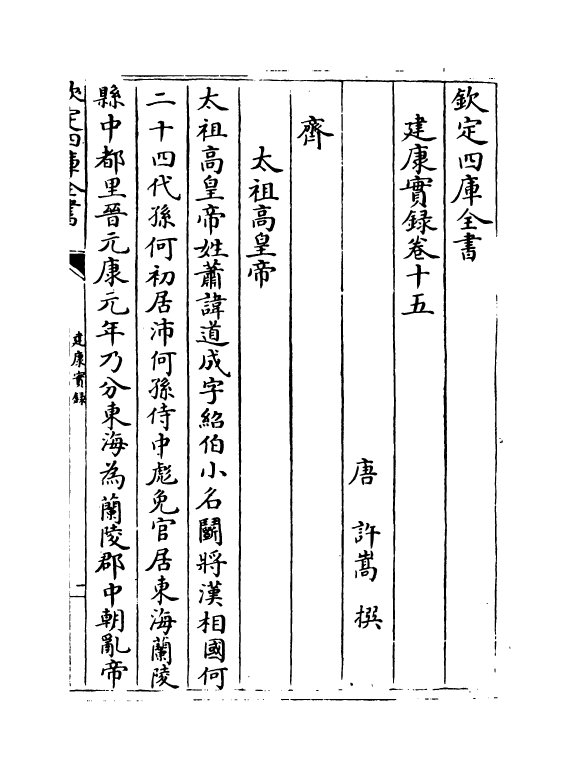 欽定四庫全書
建康實録卷十五
唐 許嵩 撰
齊
太祖高皇帝
太祖高皇帝姓蕭諱道成字紹伯小名鬬將漢相國何
二十四代孫何初居沛何孫侍中彪免官居東海蘭陵
縣中都里晉元康元年乃分東海為蘭陵郡中朝亂帝
欽定四庫全書
建康實録
一